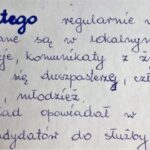 tego regularnie
ane są w lokalnym
je, komunikaty z ż
ną duszpasterz
, młodzież,
ad opowiadał w
ndydatów do służby